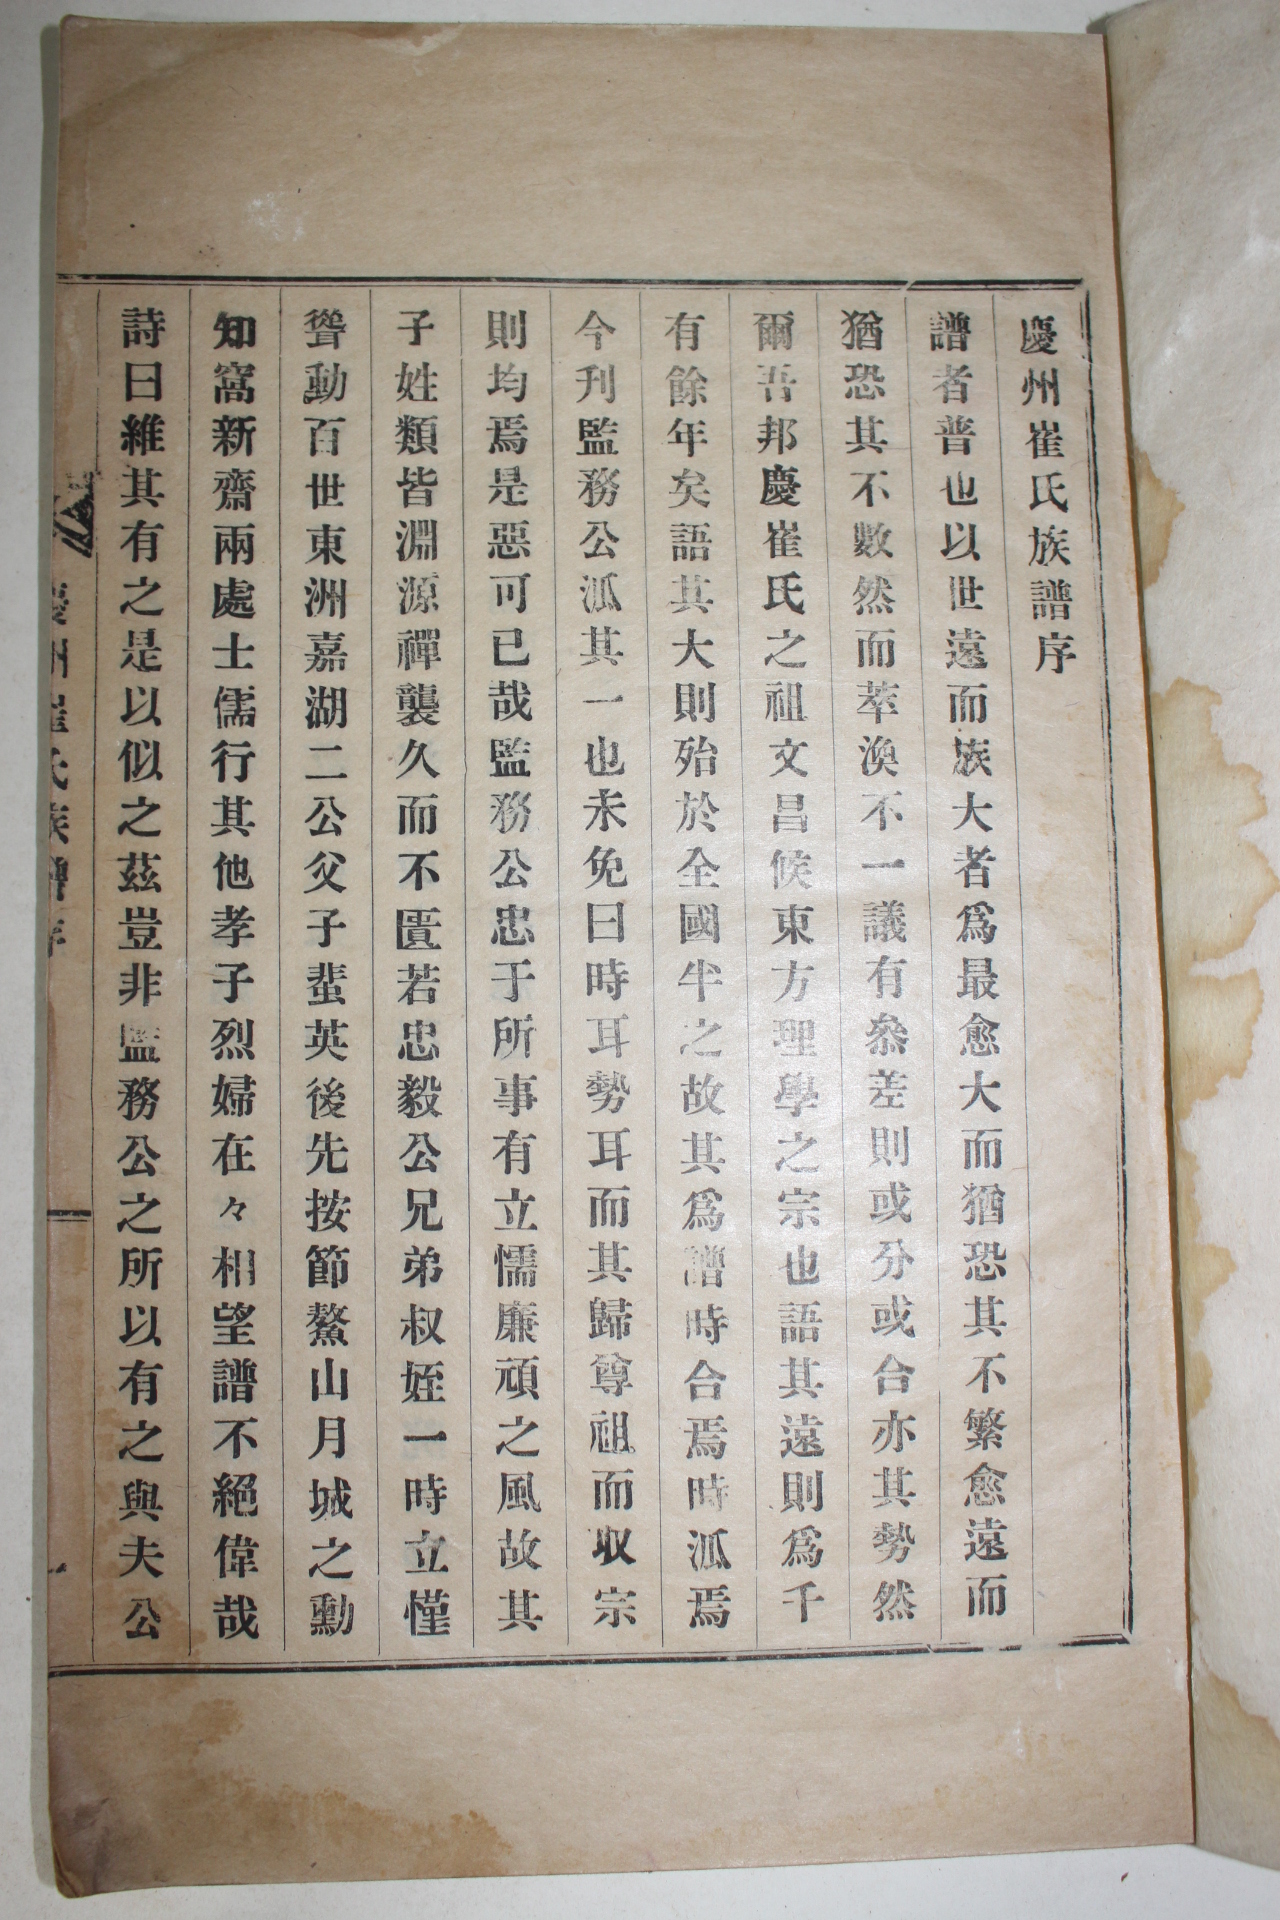 慶州崔氏族譜序
譜者普也以世遠而族大者爲最愈大而猶恐其不繁愈遠而
猶恐其不數然而萃渙不一議有叅差則或分或合亦其勢然
爾吾邦慶崔氏之祖文昌候東方理學之宗也語其遠則爲千
有餘年矣語其大則殆於全國半之故其爲譜時合焉時派焉
今刊監務公派其一也未免曰時耳勢耳而其歸尊祖而収宗
則均焉是惡可已哉監務公忠于所事有立懦廉頑之風故其
子姓類皆淵源禪襲久而不匱若忠毅公兄弟叔姪一時立慬
聳動百世東洲嘉湖二公父子蜚英後先按節鰲山月城之勳
知窩新齋兩處士儒行其他孝子烈婦在々相望譜不絕偉哉
詩曰維其有之是以似之茲豈非監務公之所以有之與夫公
慶州崔氏族譜序